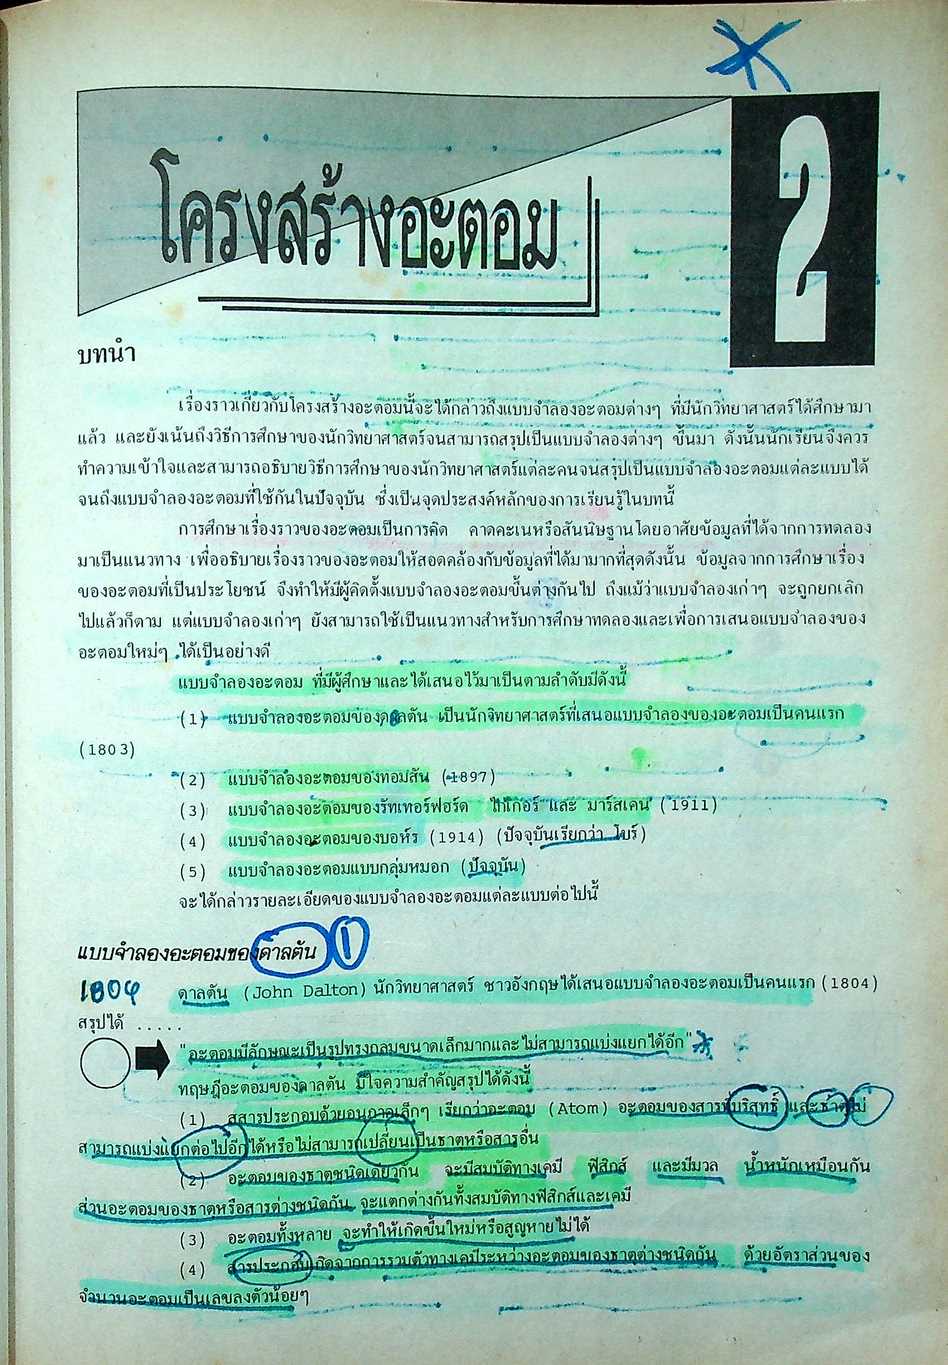 โครงสร้างอะตอม
2
บทนำ
เรื่องราวเกี่ยวกับโครงสร้างอะตอมนี้จะได้กล่าวถึงแบบจำลองอะตอมต่างๆ ที่มีนักวิทยาศาสตร์ได้ศึกษามา
แล้ว และยังเน้นถึงวิธีการศึกษาของนักวิทยาศาสตร์จนสามารถสรุปเป็นแบบจำลองต่างๆ ขึ้นมา ดังนั้นนักเรียนจึงควร
ทำความเข้าใจและสามารถอธิบายวิธีการศึกษาของนักวิทยาศาสตร์แต่ละคนจนสรุปเป็นแบบจำลองอะตอมแต่ละแบบได้
จนถึงแบบจำลองอะตอมที่ใช้กันในปัจจุบัน ซึ่งเป็นจุดประสงค์หลักของการเรียนรู้ในบทนี้
การศึกษาเรื่องราวของอะตอมเป็นการคิด คาดคะเนหรือสันนิษฐานโดยอาศัยข้อมูลที่ได้จากการทดลอง
มาเป็นแนวทาง เพื่ออธิบายเรื่องราวของอะตอมให้สอดคล้องกับข้อมูลที่ได้มามากที่สุดดังนั้น ข้อมูลจากการศึกษาเรื่อง
ของอะตอมที่เป็นประโยชน์ จึงทำให้มีผู้คิดตั้งแบบจำลองอะตอมขึ้นต่างกันไป ถึงแม้ว่าแบบจำลองเก่าๆ จะถูกยกเลิก
ไปแล้วก็ตาม แต่แบบจำลองเก่าๆ ยังสามารถใช้เป็นแนวทางสำหรับการศึกษาทดลองและเพื่อการเสนอแบบจำลองของ
อะตอมใหม่ๆ ได้เป็นอย่างดี
แบบจำลองอะตอม ที่มีผู้ศึกษาและได้เสนอไว้มาเป็นตามลำดับมีดังนี้
(1) แบบจำลองอะตอมของดาลตัน เป็นนักวิทยาศาสตร์ที่เสนอแบบจำลองของอะตอมเป็นคนแรก
(1803)
(2) แบบจำลองอะตอมของทอมสัน (1897)
(3) แบบจำลองอะตอมของรัทเทอร์ฟอร์ด ไกเกอร์ และ มาร์สเดน (1911)
(4) แบบจำลองอะตอมของบอห์ร (1914) (ปัจจุบันเรียกว่า โบร์)
(5) แบบจำลองอะตอมแบบกลุ่มหมอก (ปัจจุบัน)
จะได้กล่าวรายละเอียดของแบบจำลองอะตอมแต่ละแบบต่อไปนี้
แบบจำลองอะตอมของดาลตัน 1
1804 ดาลตัน (John Dalton) นักวิทยาศาสตร์ ชาวอังกฤษได้เสนอแบบจำลองอะตอมเป็นคนแรก (1804)
สรุปได้ .....
"อะตอมมีลักษณะเป็นรูปทรงกลมขนาดเล็กมากและไม่สามารถแบ่งแยกได้อีก"
ทฤษฎีอะตอมของดาลตัน มีใจความสำคัญสรุปได้ดังนี้
(1) สสารประกอบด้วยอนุภาคเล็กๆ เรียกว่าอะตอม (Atom) อะตอมของสารที่บริสุทธิ์ และธาตุไม่
สามารถแบ่งแยกต่อไปอีกได้หรือไม่สามารถเปลี่ยนเป็นธาตุหรือสารอื่น
(2) อะตอมของธาตุชนิดเดียวกัน จะมีสมบัติทางเคมี ฟิสิกส์ และมีมวล น้ำหนักเหมือนกัน
ส่วนอะตอมของธาตุหรือสารต่างชนิดกัน จะแตกต่างกันทั้งสมบัติทางฟิสิกส์และเคมี
(3) อะตอมทั้งหลาย จะทำให้เกิดขึ้นใหม่หรือสูญหายไม่ได้
(4) สารประกอบเกิดจากการรวมตัวทางเคมีระหว่างอะตอมของธาตุต่างชนิดกัน ด้วยอัตราส่วนของ
จำนวนอะตอมเป็นเลขลงตัวน้อยๆ